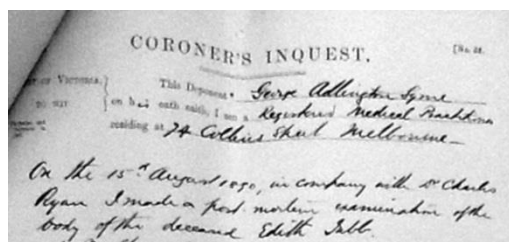 CORONER'S INQUEST.
[No. 28.
OF VICTORIA. This Deponent George Adlington Syme
TO WIT on his oath saith, I am a Registered Medical Practitioner
residing at 74 Collins Street Melbourne
On the 15th August 1890, in company with Dr Charles
Ryan I made a post-mortem examination of the
body of the deceased Edith